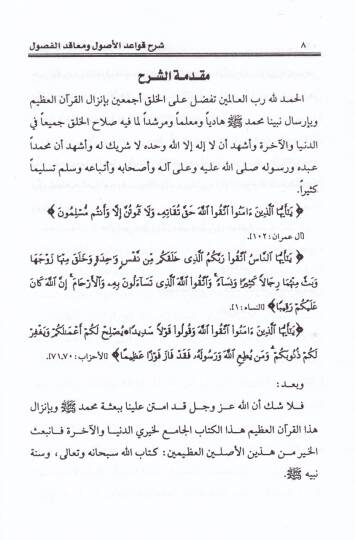 ٨ شرح قواعد الأصول ومعاقد الفصول
مقدمة الشرح
الحمد لله رب العالمين تفضل على الخلق أجمعين بإنزال القرآن العظيم
وبإرسال نبينا محمد ﷺ هادياً ومعلماً ومرشداً لما فيه صلاح الخلق جميعاً في
الدنيا والآخرة وأشهد أن لا إله إلا الله وحده لا شريك له وأشهد أن محمداً
عبده ورسوله صلى الله عليه وعلى آله وأصحابه وأتباعه وسلم تسليماً
كثيراً.
﴿ يَٰٓأَيُّهَا ٱلَّذِينَ ءَامَنُوا۟ ٱتَّقُوا۟ ٱللَّهَ حَقَّ تُقَاتِهِۦ وَلَا تَمُوتُنَّ إِلَّا وَأَنتُم مُّسْلِمُونَ ﴾
[آل عمران: ١٠٢].
﴿ يَٰٓأَيُّهَا ٱلنَّاسُ ٱتَّقُوا۟ رَبَّكُمُ ٱلَّذِى خَلَقَكُم مِّن نَّفْسٍ وَٰحِدَةٍ وَخَلَقَ مِنْهَا زَوْجَهَا
وَبَثَّ مِنْهُمَا رِجَالًا كَثِيرًا وَنِسَآءً ۚ وَٱتَّقُوا۟ ٱللَّهَ ٱلَّذِى تَسَآءَلُونَ بِهِۦ وَٱلْأَرْحَامَ ۚ إِنَّ ٱللَّهَ كَانَ
عَلَيْكُمْ رَقِيبًا﴾ [النساء: ١].
﴿ يَٰٓأَيُّهَا ٱلَّذِينَ ءَامَنُوا۟ ٱتَّقُوا۟ ٱللَّهَ وَقُولُوا۟ قَوْلًا سَدِيدًا * يُصْلِحْ لَكُمْ أَعْمَٰلَكُمْ وَيَغْفِرْ
لَكُمْ ذُنُوبَكُمْ ۗ وَمَن يُطِعِ ٱللَّهَ وَرَسُولَهُۥ فَقَدْ فَازَ فَوْزًا عَظِيمًا﴾ [الأحزاب: ٧١،٧٠].
وبعد:
فلا شك أن الله عز وجل قد امتن علينا ببعثة محمد ﷺ وبإنزال
هذا القرآن العظيم هذا الكتاب الجامع لخيري الدنيا والآخرة فانبعث
الخير من هذين الأصلين العظيمين: كتاب الله سبحانه وتعالى، وسنة
نبيه ﷺ.